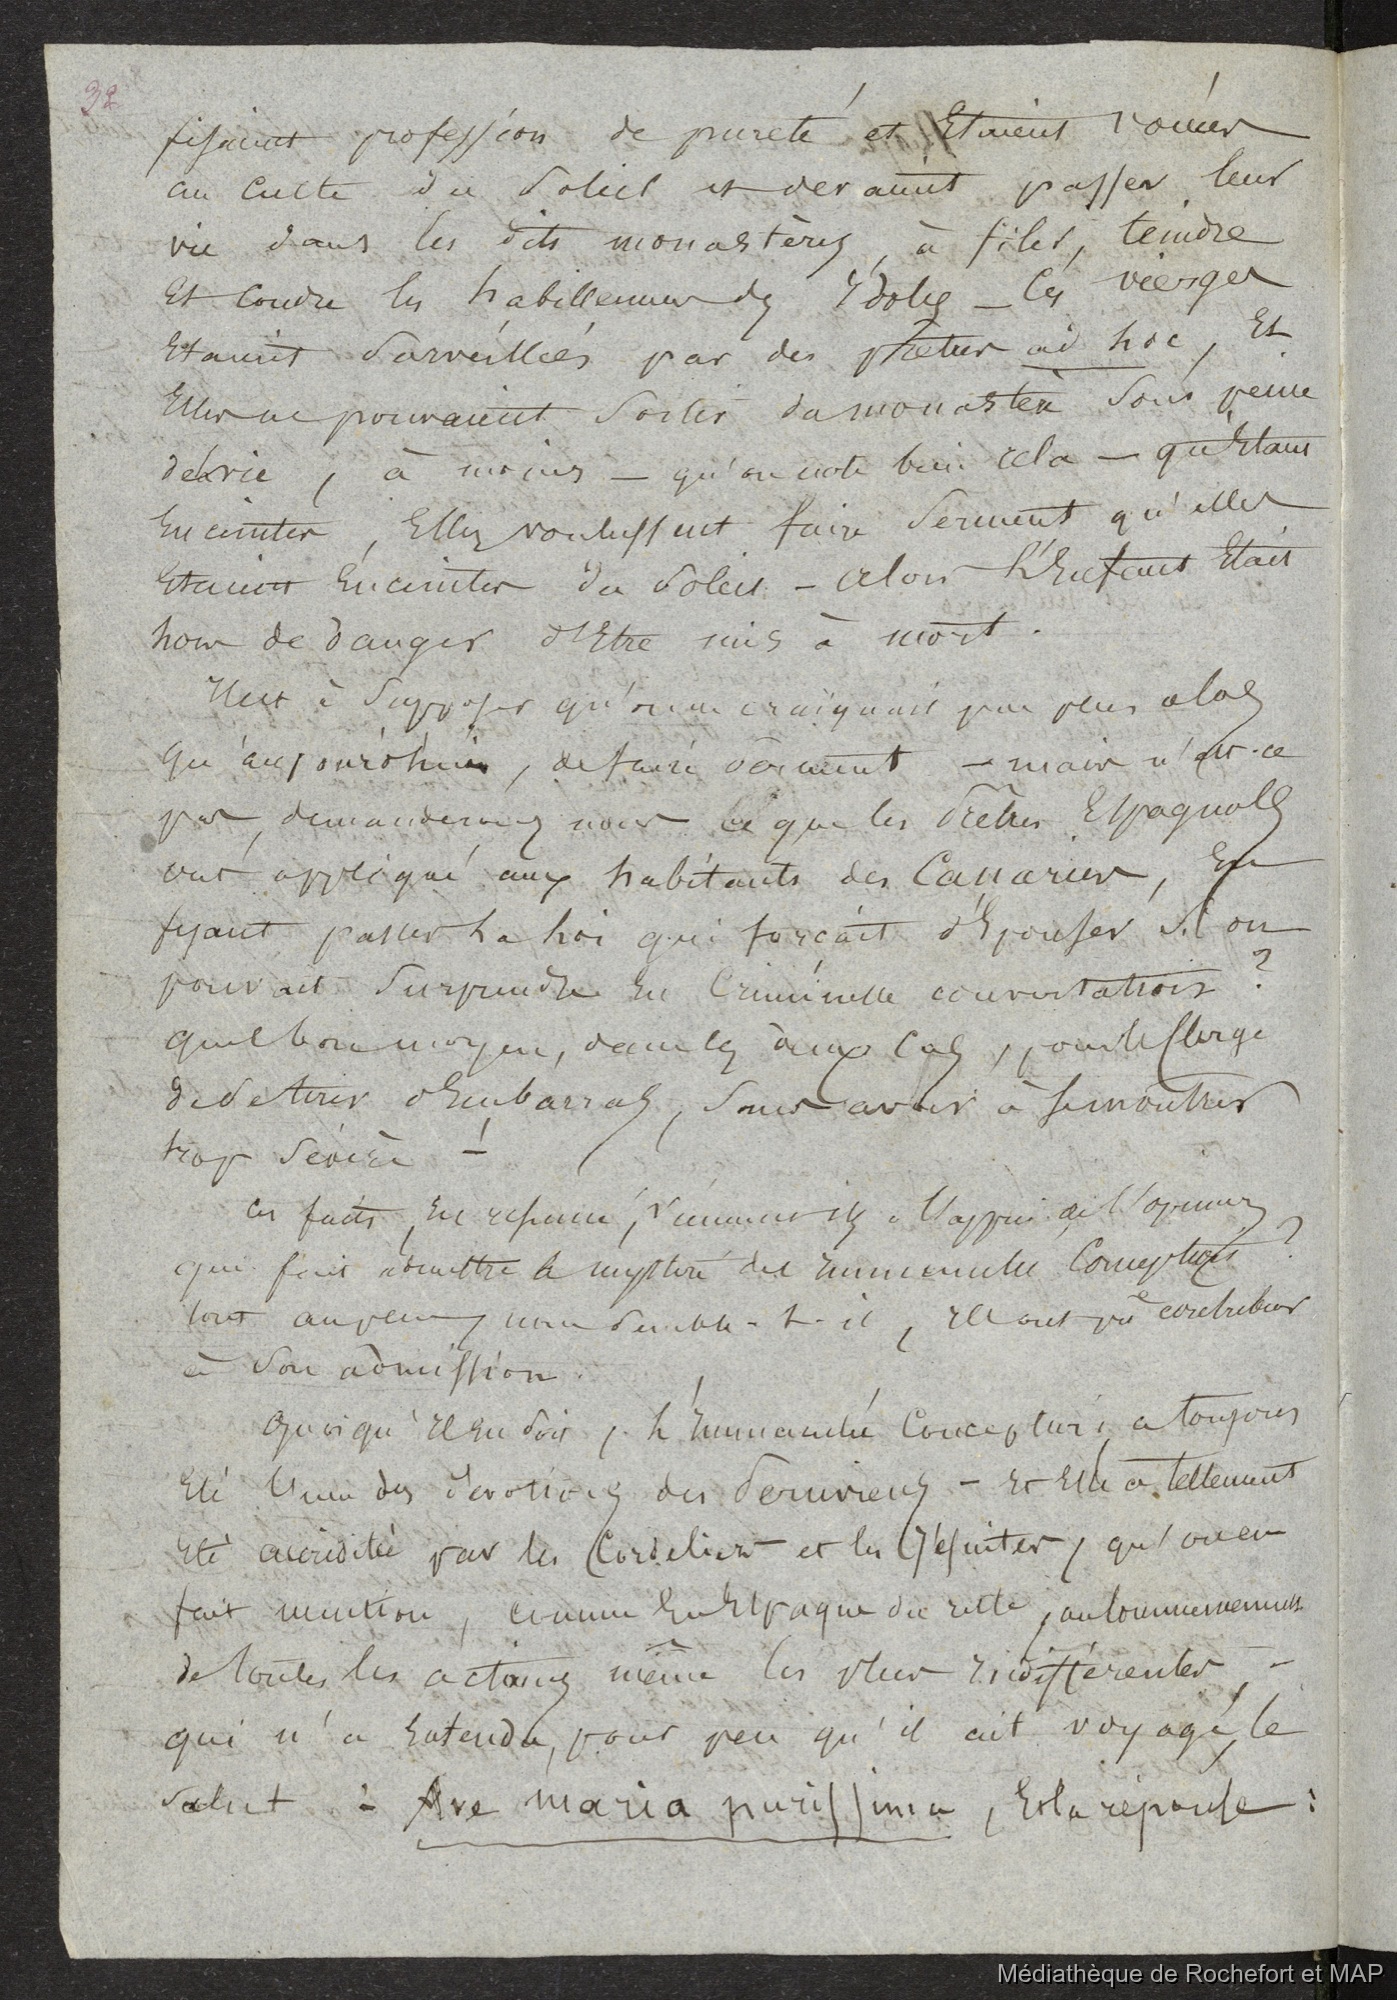 32
fesaient profession de pureté et Etaient vouées
au Culte du Soleil et devaient passer leur
vie dans les dits monastères, à filer, teindre
Et Coudre les habillemens des Ydoles – Ces vierges
Etaient Surveillées par des prêtres ad hoc, Et
Elles ne pouvaient Sortir du monastère Sous peine
de vie, à moins – qu'on note bien cela – qu'Etant
Enceintes, Elles voulussent faire Serment qu'elles
Etaient Enceintes du Soleil – alors l'Enfant Etait
hors de danger d'Etre mis à mort.
Il est à Supposer qu'on ne craignait pas plus alors
qu'aujourd'hui, de faire Serment – mais n'est-ce
pas, demanderons nous ce que les Prêtres Espagnols
ont appliqué aux habitants des Canaries, En
fesant passer La Loi qui forçait d'Epouser Si on
pouvait Surprendre En Criminelle conversation ?
quel bon moyen, dans les deux Cas, pour le Clergé
de Se tirer d'Embarras, Sans avoir à Se montrer
trop Sévère !
Ces faits, En résumé, viennent-ils à l'appui de l'opinion
qui fait admettre le mystère de l'immaculée Conception ?
tout au plus, nous Semble-t-il, Ils ont pu contribuer
à Son admission.
Quoiqu'Il en Soit, L'Immaculée Conception, a toujours
Eté l'une des dévotions des Péruviens – Et Elle a tellement
Eté accréditée par les Cordeliers et les Jésuites, qu'on en
fait mention, comme En Espagne du reste, au commencement
de toutes les actions même les plus indifférentes, –
qui n'a Entendu, pour peu qu'il ait voyagé, le
Salut : Ave maria purissima, Et la réponse :
Médiathèque de Rochefort et MAP